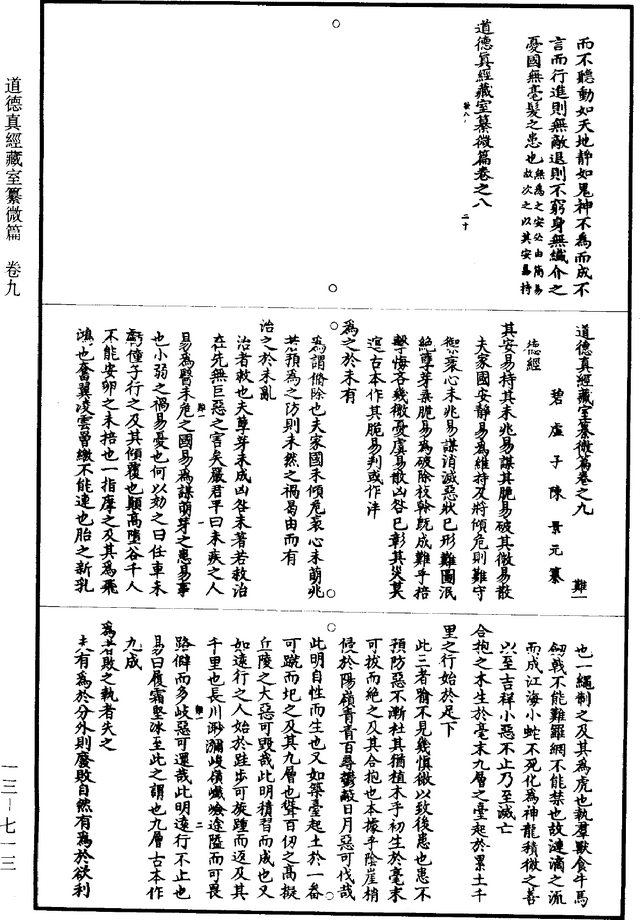 道德真經藏室纂微篇　卷九
一三—七一三
而不聽動如天地靜如鬼神不為而成不
言而行進則無敵退則不窮身無纖介之
憂國無毫髮之患也無為之安必由簡易
故次之以其安易持
道德真經藏室纂微篇卷之八
二十
道德真經藏室纂微篇卷之九
難一
碧虛子陳景元纂
德經
其安易持其未兆易謀其脆易破其微易散
夫家國安靜易為維持及將傾危則難守
禦衷心未兆易謀消滅惡狀已形難圖泯
絕孽芽柔脆易為破除枝幹既成難乎掊
擊悔吝幾微憂虞易散凶咎已彰其災莫
逭古本作其脆易判或作泮
為之於未有
為謂脩除也夫家國未傾危衷心未萌兆
若預為之防則未然之禍曷由而有
治之於未亂
治者救也夫孽芽未成凶咎未著若救治
在先無巨惡之害矣嚴君平曰未疾之人
易為醫未危之國易為謀萌芽之患易事
也小弱之禍易憂也何以効之曰任車未
虧僮子行之及其傾覆也顛高墮谷千人
不能安卵之未掊也一指摩之及其為飛
鴻也奮翼凌雲罾繳不能連也胎之新乳
也一繩制之及其為虎也執羣獸食牛馬
劒戟不能難羅網不能禁也故漣滴之流
而成江海小蛇不死化為神龍積微之善
以至吉祥小惡不止乃至滅亡
合抱之本生於毫末九層之臺起於累土千
里之行始於足下
此三者喻不見幾慎微以致後患也患不
預防惡不漸杜其猶植木乎初生於毫末
可拔而絕之及其合抱也本據乎陰崖梢
侵於陽嶺青青百尋鬱蔽日月惡可伐哉
此明自性而生也又如築臺起土於一畚
可蹴而圮之及其九層也聳百仞之高擬
丘陵之大惡可毀哉此明積習而成也又
如遠行之人始於跬步可旋踵而返及其
千里也長川渺瀰峻嶺巇嶮途隘而可畏
路僻而多歧惡可還哉此明遠行不止也
易曰履霜堅冰至此之謂也九層古本作
九成
為者敗之執者失之
夫有為於分外則廢敗自然有為於欲利